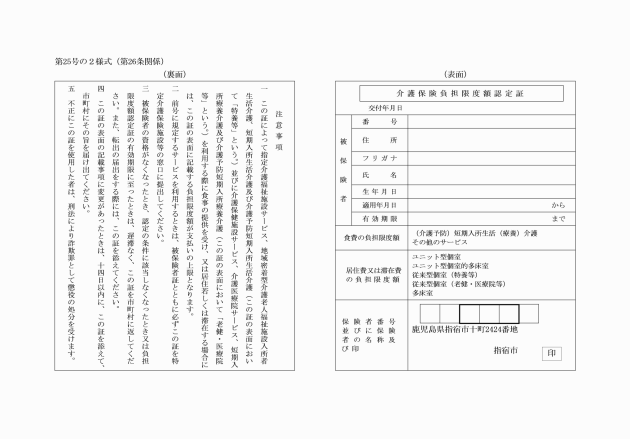 第25号の2様式(第26条関係)
(裏面)
注意事項
一 この証によって指定介護福祉施設サービス、地域密着型介護老人福祉施設入所者
生活介護、短期入所生活介護及び介護予防短期入所生活介護(この証の表面におい
て「特養等」という。)並びに介護保健施設サービス、介護医療院サービス、短期入
所療養介護及び介護予防短期入所療養介護(この証の表面において「老健・医療院
等」という。)を利用する際に食事の提供を受け、又は居住若しくは滞在する場合に
は、この証の表面に記載する負担限度額が支払いの上限となります。
二 前号に規定するサービスを利用するときは、被保険者証とともに必ずこの証を特
定介護保険施設等の窓口に提出してください。
三 被保険者の資格がなくなったとき、認定の条件に該当しなくなったとき又は負担
限度額認定証の有効期限に至ったときは、遅滞なく、この証を市町村に返してくだ
さい。また、転出の届出をする際には、この証を添えてください。
四 この証の表面の記載事項に変更があったときは、十四日以内に、この証を添えて、
市町村にその旨を届け出てください。
五 不正にこの証を使用した者は、刑法により詐欺罪として懲役の処分を受けます。
(表面)
介護保険負担限度額認定証
交付年月日
被保険者
番号
住所
フリガナ
氏名
生年月日
適用年月日 から
有効期限 まで
食費の負担限度額
(介護予防)短期入所生活(療養)介護
その他のサービス
居住費又は滞在費
の負担限度額
ユニット型個室
ユニット型個室的多床室
従来型個室(特養等)
従来型個室(老健・医療院等)
多床室
保険者番号
並びに保険
者の名称及
び印
鹿児島県指宿市十町2424番地
指宿市 印